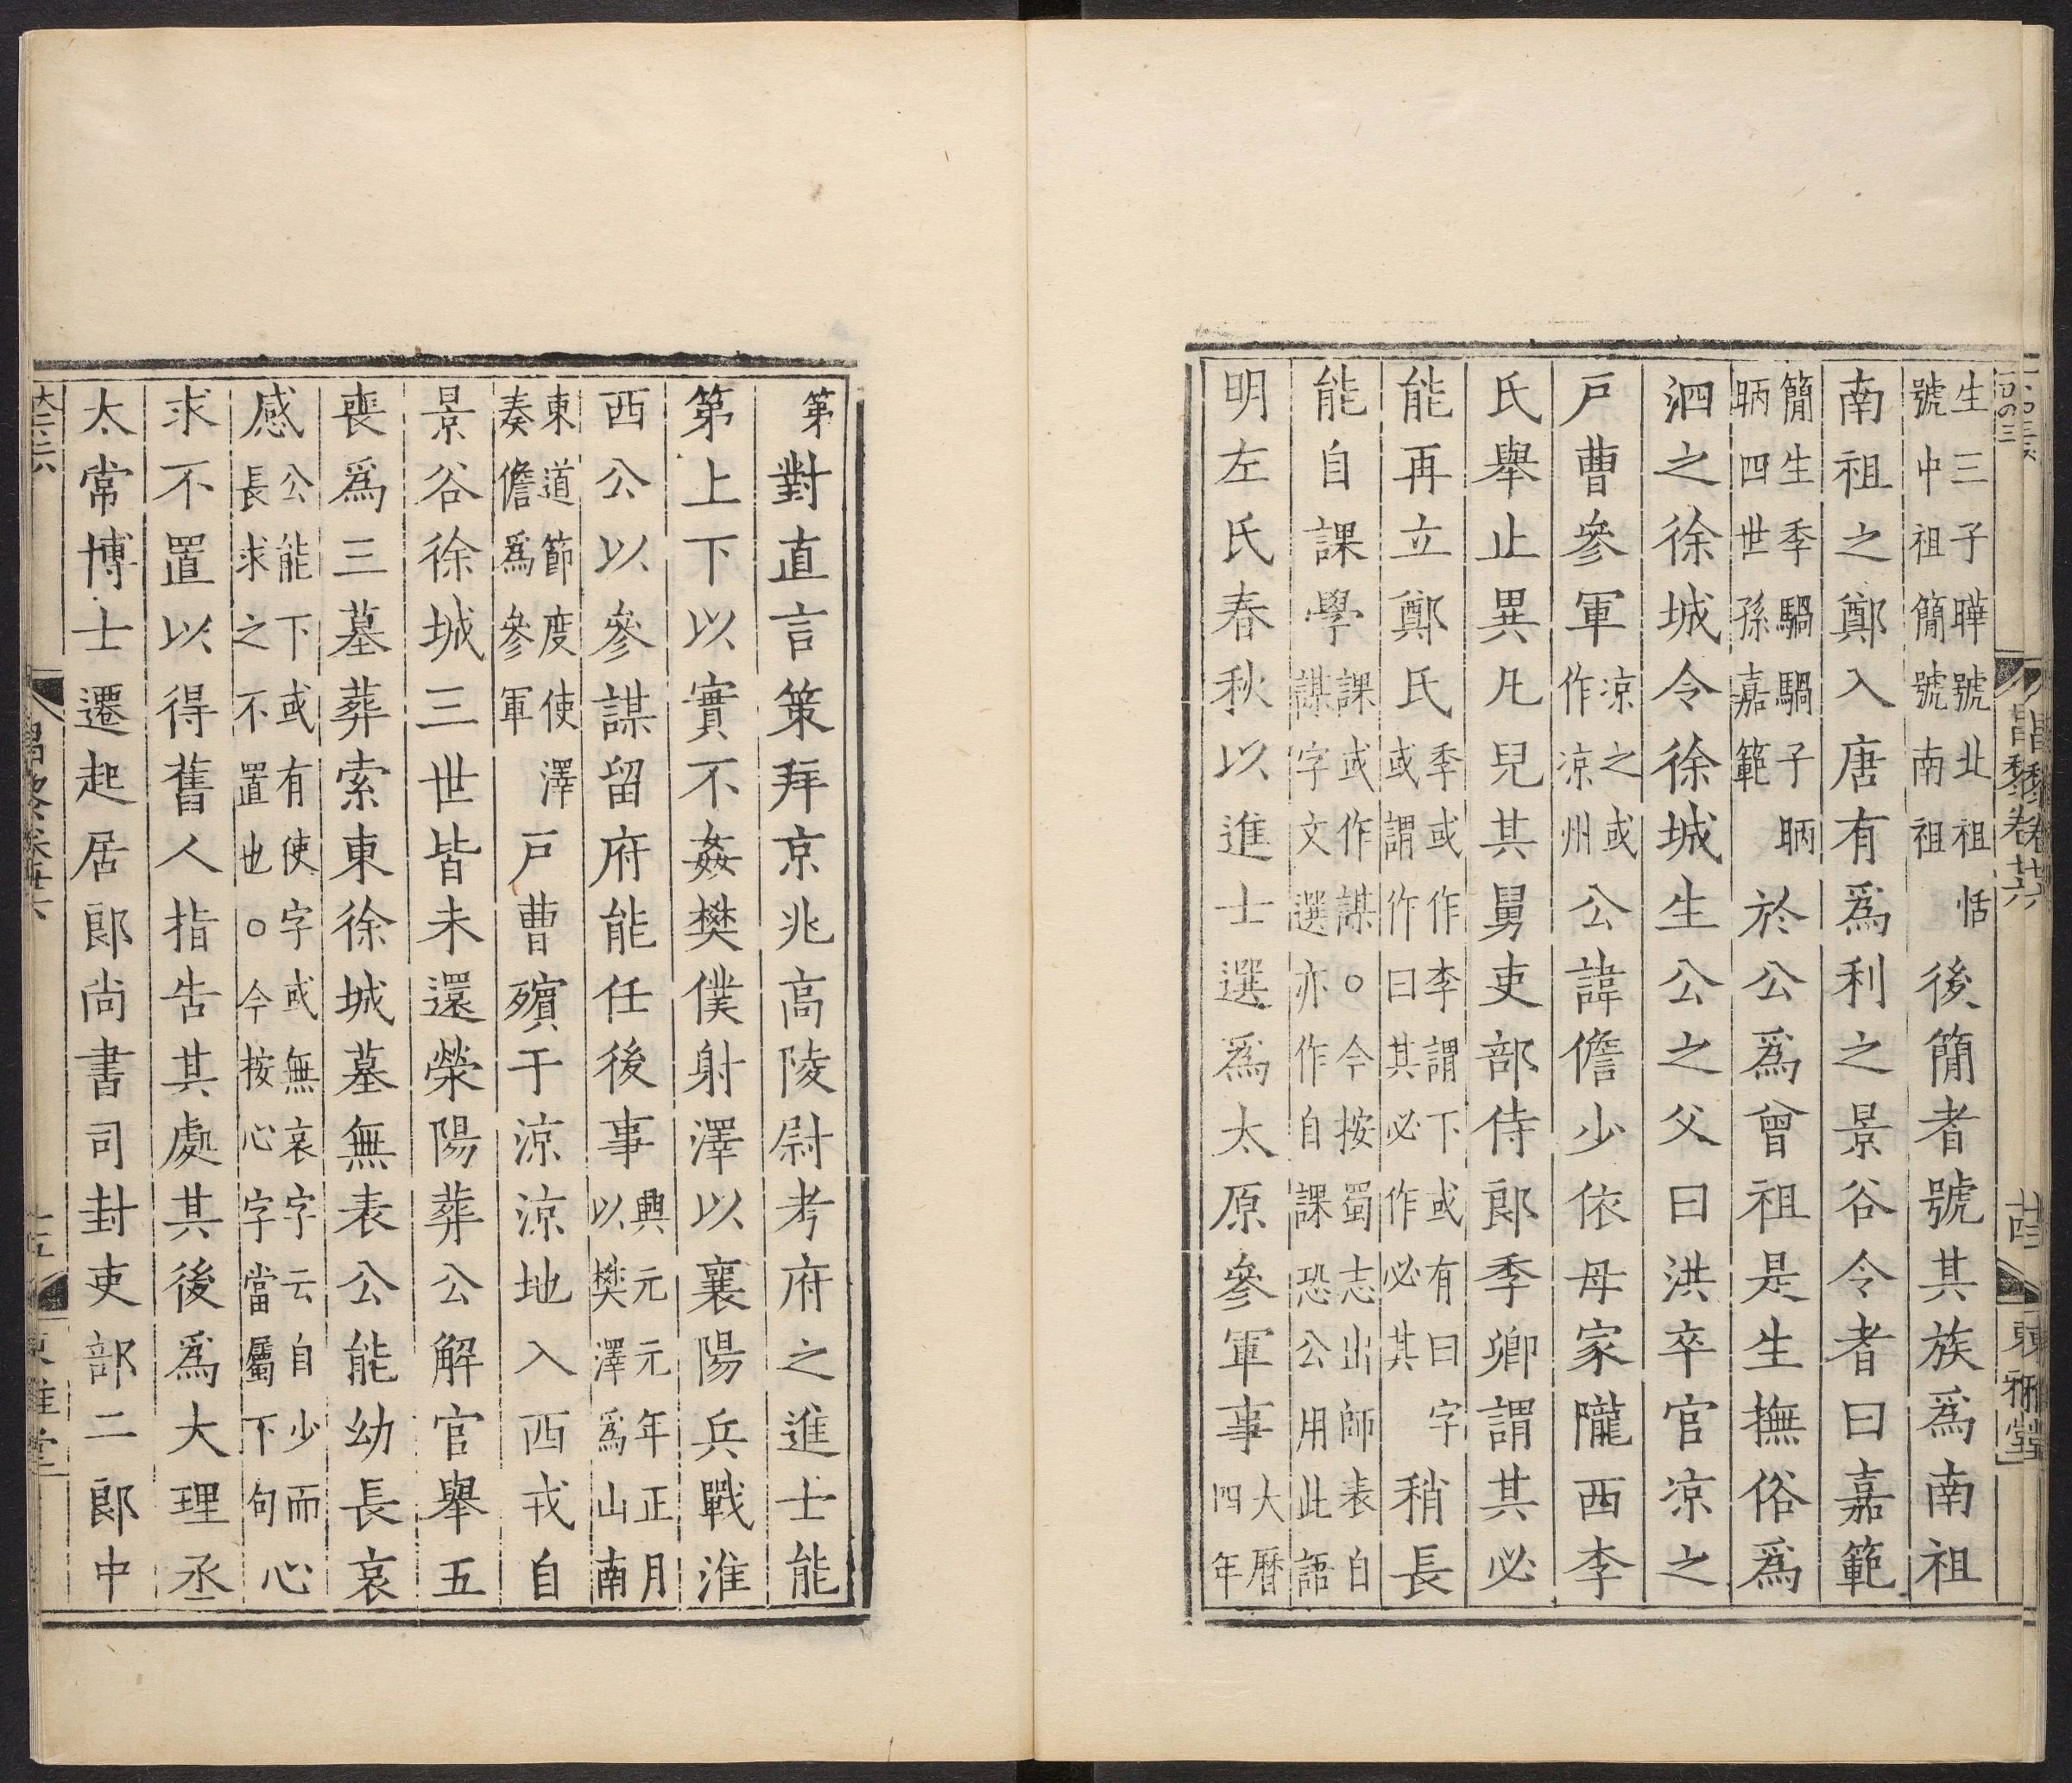 生三子曄號北祖恬
號中祖簡號南祖後簡者號其族爲南祖
南祖之鄭入唐有爲利之景谷令者曰嘉範
簡生季騧騧子昞
昞四世孫嘉範於公爲曾祖是生撫俗爲
泗之徐城令徐城生公之父曰洪卒官凉之
戸曹參軍凉之或作凉州公諱儋少依母家隴西李
氏舉止異凡兒其舅吏部侍郎季卿謂其必
能再立鄭氏季或作李謂下或有曰字
或謂作曰其必作必其稍長
能自課學課或作謀○今按蜀志出師表自
謀字文選亦作自課恐公用此語
明左氏春秋以進士選爲太原參軍事大曆
四年
昌黎卷廿六
東雅堂
第對直言策拜京兆高陵尉考府之進士能
第上下以實不姦樊僕射澤以襄陽兵戰淮
西公以參謀留府能任後事興元元年正月
以樊澤爲山南
東道節度使澤
奏儋爲參軍戸曹殯于涼涼地入西戎自
景谷徐城三世皆未還滎陽葬公解官舉五
喪爲三墓葬索東徐城墓無表公能幼長哀
感公能下或有使字或無哀字云自少而心
長求之不置也○今按心字當屬下句心
求不置以得舊人指告其處其後爲大理丞
太常博士遷起居郎尚書司封吏部二郎中